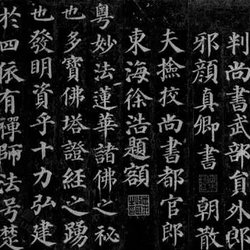 判尚書武部員外郎
邪顏真卿書 朝散
夫撿校尚書都官郎
東海徐浩題額
粵妙法蓮華諸佛之秘
也多寶佛塔證經之踴
也發明資乎十力弘建
於四依有禪師法号楚